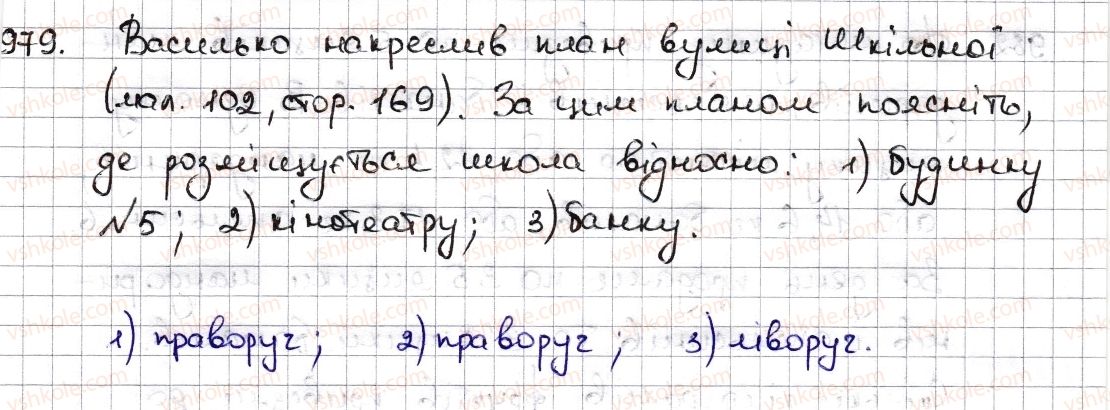 979. Василько накреслив план вулиці Шкільної
(мал. 102, стор. 169). За цим планом поясніть,
де розміщується школа відносно: 1) будинку
№5; 2) кінотеатру; 3) банку.
1) праворуч; 2) праворуч; 3) ліворуч.